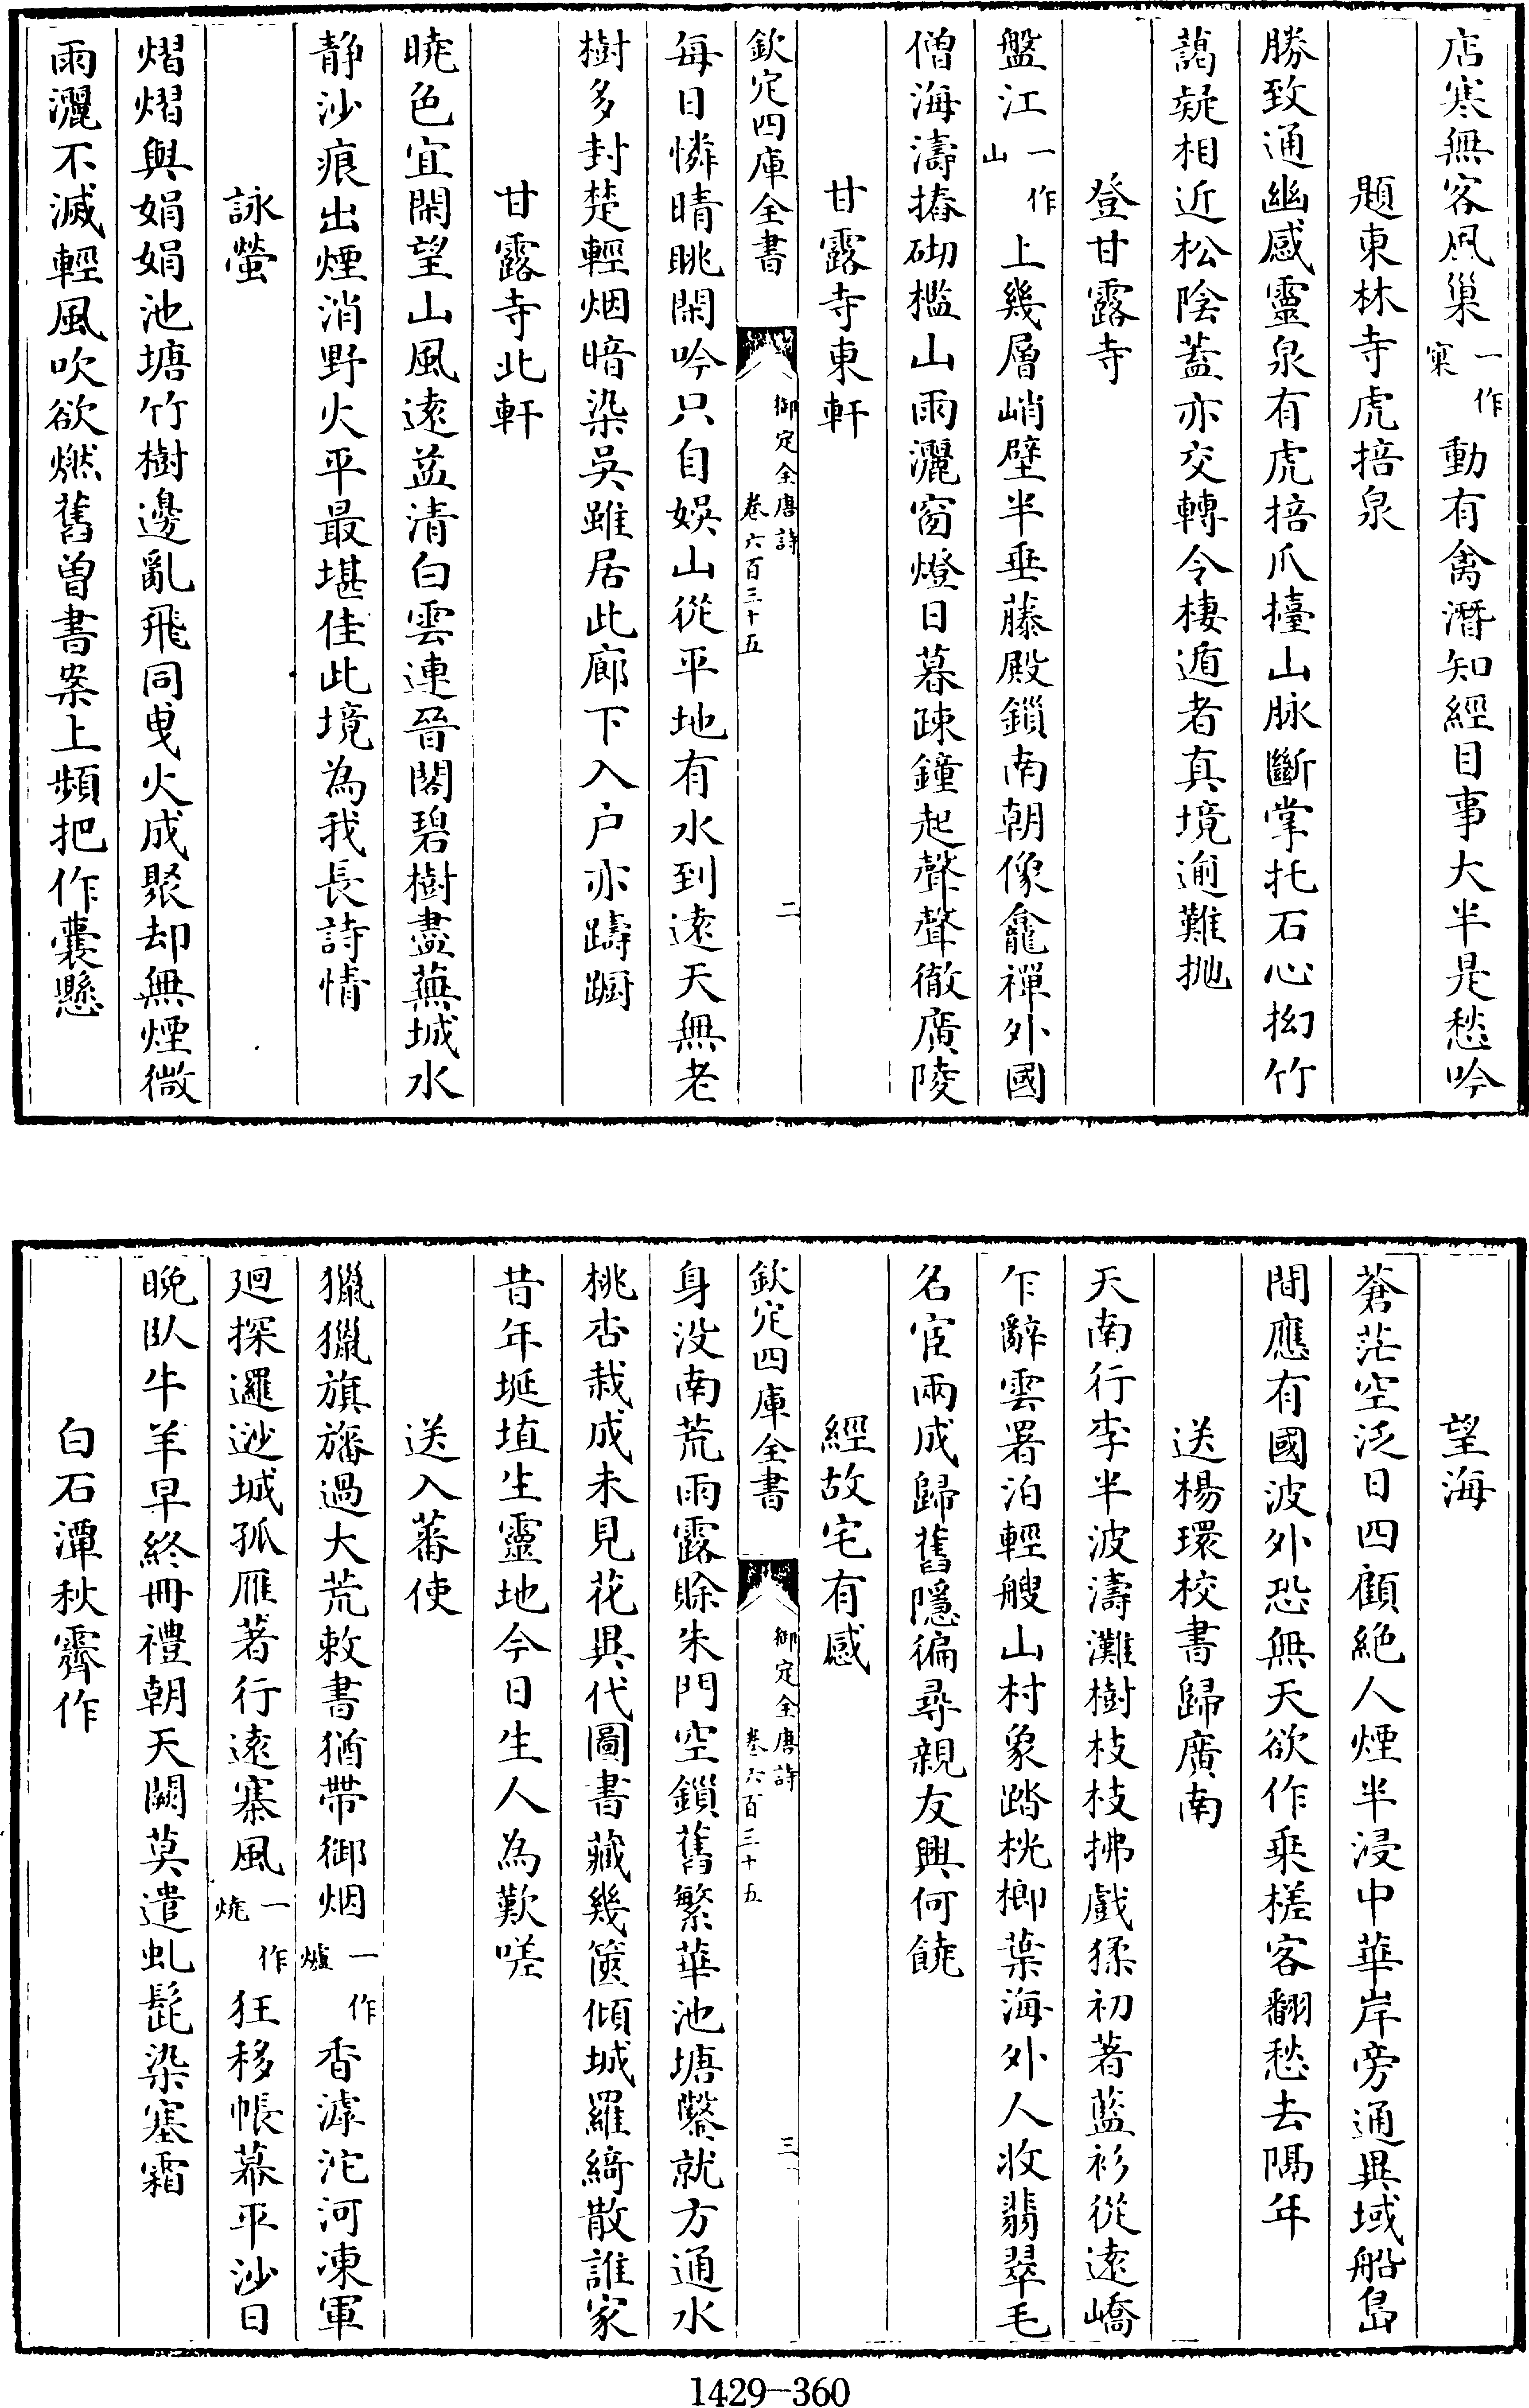 店寒無客風巢一作窠動有禽潛知經目事大半是愁吟
題東林寺虎掊泉
勝致通幽感靈泉有虎掊爪擡山脉斷掌托石心拗竹
藹疑相近松陰蓋亦交轉令棲遁者真境逾難抛
登甘露寺
盤江一作山上幾層峭壁半垂藤殿鎖南朝像龕禪外國
僧海濤摏砌檻山雨灑窗燈日暮疎鐘起聲聲徹廣陵
甘露寺東軒
欽定四庫全書
御定全唐詩
卷六百三十五
二
每日憐晴眺閑吟只自娛山從平地有水到遠天無老
樹多封楚輕烟暗染吳雖居此廊下入户亦躊蹰
甘露寺北軒
曉色宜閑望山風遠益清白雲連晉閣碧樹盡蕪城水
静沙痕出煙消野火平最堪佳此境為我長詩情
詠螢
熠熠與娟娟池塘竹樹邊亂飛同曳火成聚却無煙微
雨灑不滅輕風吹欲燃舊曾書案上頻把作囊懸
望海
蒼茫空泛日四顧絶人煙半浸中華岸旁通異域船島
間應有國波外恐無天欲作乘槎客翻愁去隔年
送楊環校書歸廣南
天南行李半波濤灘樹枝枝拂戲猱初著藍衫從遠嶠
乍辭雲署泊輕艘山村象踏桄榔葉海外人收翡翠毛
名宦兩成歸舊隱徧尋親友興何饒
經故宅有感
欽定四庫全書
御定全唐詩
卷六百三十五
三
身没南荒雨露賒朱門空鎖舊繁華池塘鑿就方通水
桃杏栽成未見花異代圖書藏幾篋傾城羅綺散誰家
昔年埏埴生靈地今日生人為歎嗟
送入蕃使
獵獵旗旛過大荒敕書猶帶御烟一作爐香滹沱河凍軍
廻探邏逤城孤雁著行遠寨風一作燒狂移帳幕平沙日
晚臥牛羊早終冊禮朝天闕莫遣虬髭染塞霜
白石潭秋霽作
1429—360